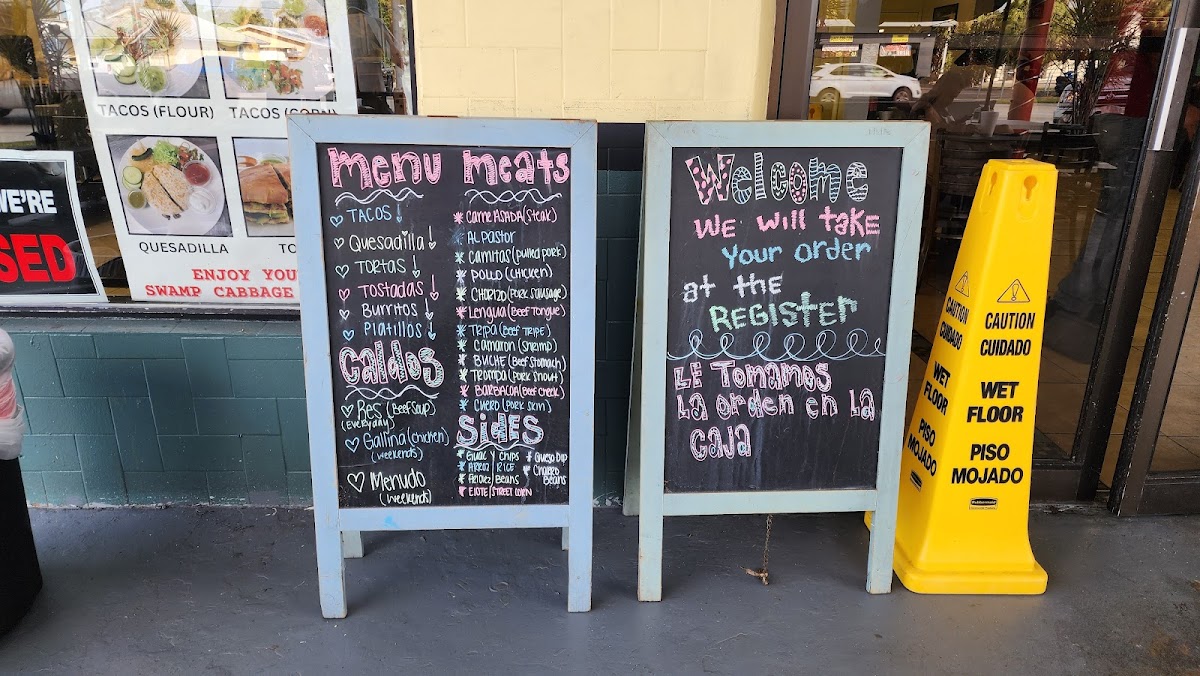 TACOS (FLOUR)
TACOS (CORN)
QUESADILLA
ENJOY YOU
SWAMP CABBAGE
WE'RE
SED
Menu
TACOS
Quesadilla
TORTAS
TOSTADAS
Burritos
Platillos
Caldos
Res (Beef Soup)
(Everyday)
Gallina (chicken)
(weekends)
Menudo
(weekends)
Meats
Carne ASADA (Steak)
AL PASTOR
Carnitas (Pulled Pork)
POLLO (CHICKEN)
CHORIZO (Pork Sausage)
Lengua (Beef Tongue)
TRIPA (BEEF TRIPE)
Camaron (Shrimp)
BUCHE (Beef Stomach)
Trompa (Pork Snout)
BARBACOA (Beef Cheek)
CUERO (PORK SKIN)
SIDES
GUAC Y CHIPS
ARROZ RICE
Beans
ELOTE STREET CORN
QUESO DIP
CHARRO
Beans
Welcome
We will take
Your order
at the
REGISTER
LE Tomamos
La orden en LA
CAJA
CAUTION
CUIDADO
WET
FLOOR
PISO
MOJADO
CAUTION
CUIDADO
WET
FLOOR
PISO
MOJADO